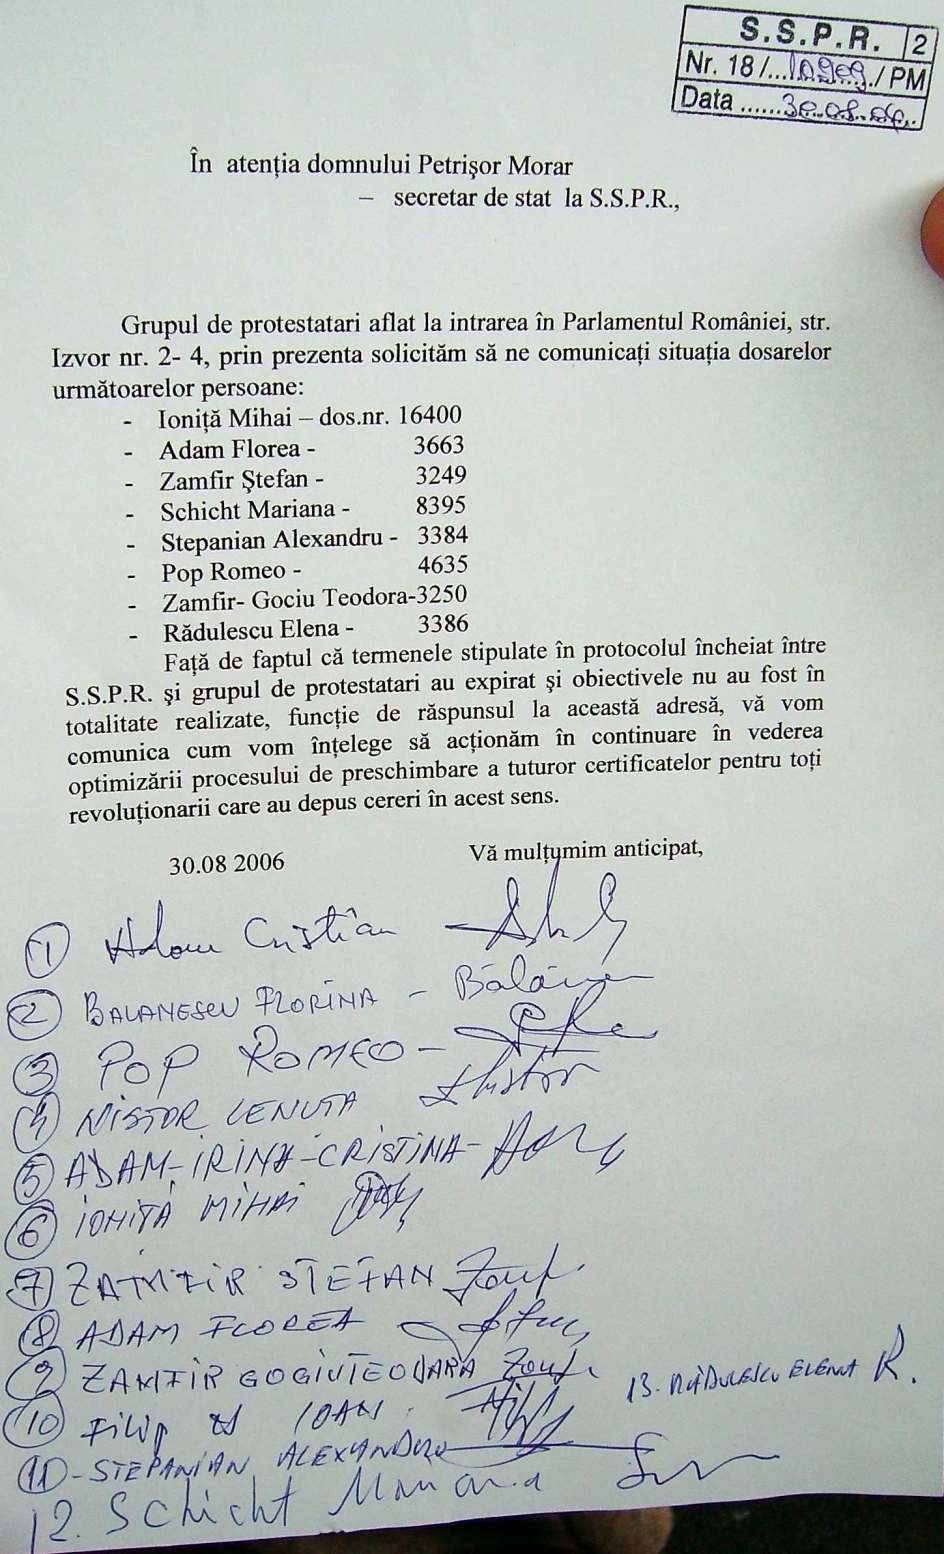 S.S.P.R. 2
Nr. 18/...10909./PM
Data ......30.08.06..
În atenția domnului Petrișor Morar
– secretar de stat la S.S.P.R.,
Grupul de protestatari aflat la intrarea în Parlamentul României, str.
Izvor nr. 2- 4, prin prezenta solicităm să ne comunicați situația dosarelor
următoarelor persoane:
- Ioniță Mihai – dos.nr. 16400
- Adam Florea - 3663
- Zamfir Ștefan - 3249
- Schicht Mariana - 8395
- Stepanian Alexandru - 3384
- Pop Romeo - 4635
- Zamfir- Gociu Teodora-3250
- Rădulescu Elena - 3386
Față de faptul că termenele stipulate în protocolul încheiat între
S.S.P.R. și grupul de protestatari au expirat și obiectivele nu au fost în
totalitate realizate, funcție de răspunsul la această adresă, vă vom
comunica cum vom înțelege să acționăm în continuare în vederea
optimizării procesului de preschimbare a tuturor certificatelor pentru toți
revoluționarii care au depus cereri în acest sens.
30.08 2006
Vă mulțumim anticipat,
1 Adam Cristian -
2 BALANESCU FLORINA -
3 POP ROMEO -
4 NISTOR LENUTA
5 ADAM-IRINA-CRISTINA-
6 IONIȚĂ MIHAI
7 ZAMFIR STEFAN
8 ADAM FLOREA
9 ZAMFIR GOGIUTEODARA
10 Filip IOAN
11 -STEPANIAN ALEXANDRU
12. Schicht Mariana
13. RĂDULESCU ELENA R.